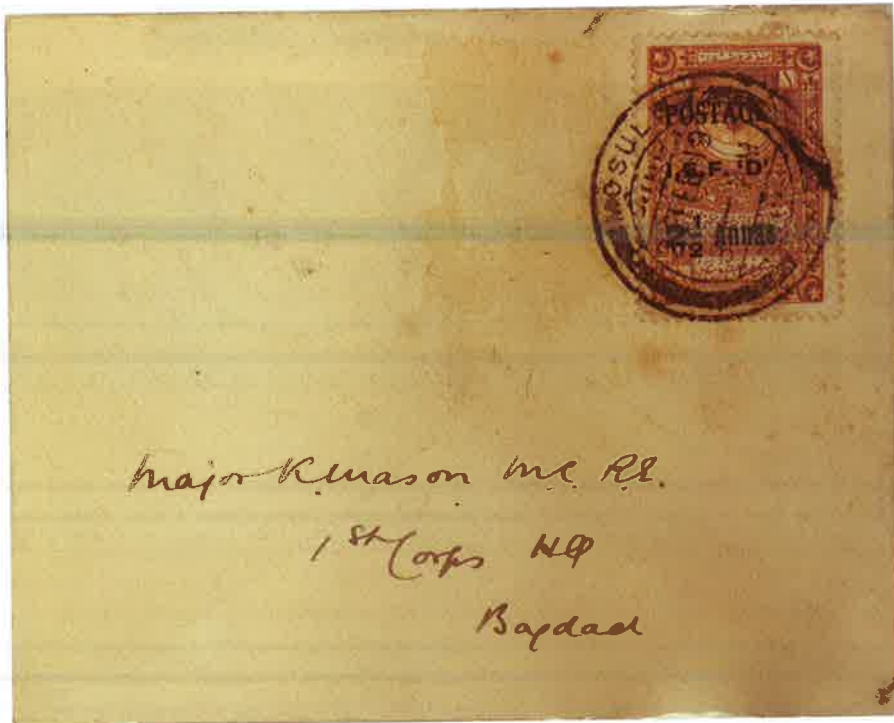 MOSUL
POSTAGE
I.E.F. 'D'
2½ Annas
Major K. Mason M.C. R.E.
1st Corps HQ
Bagdad